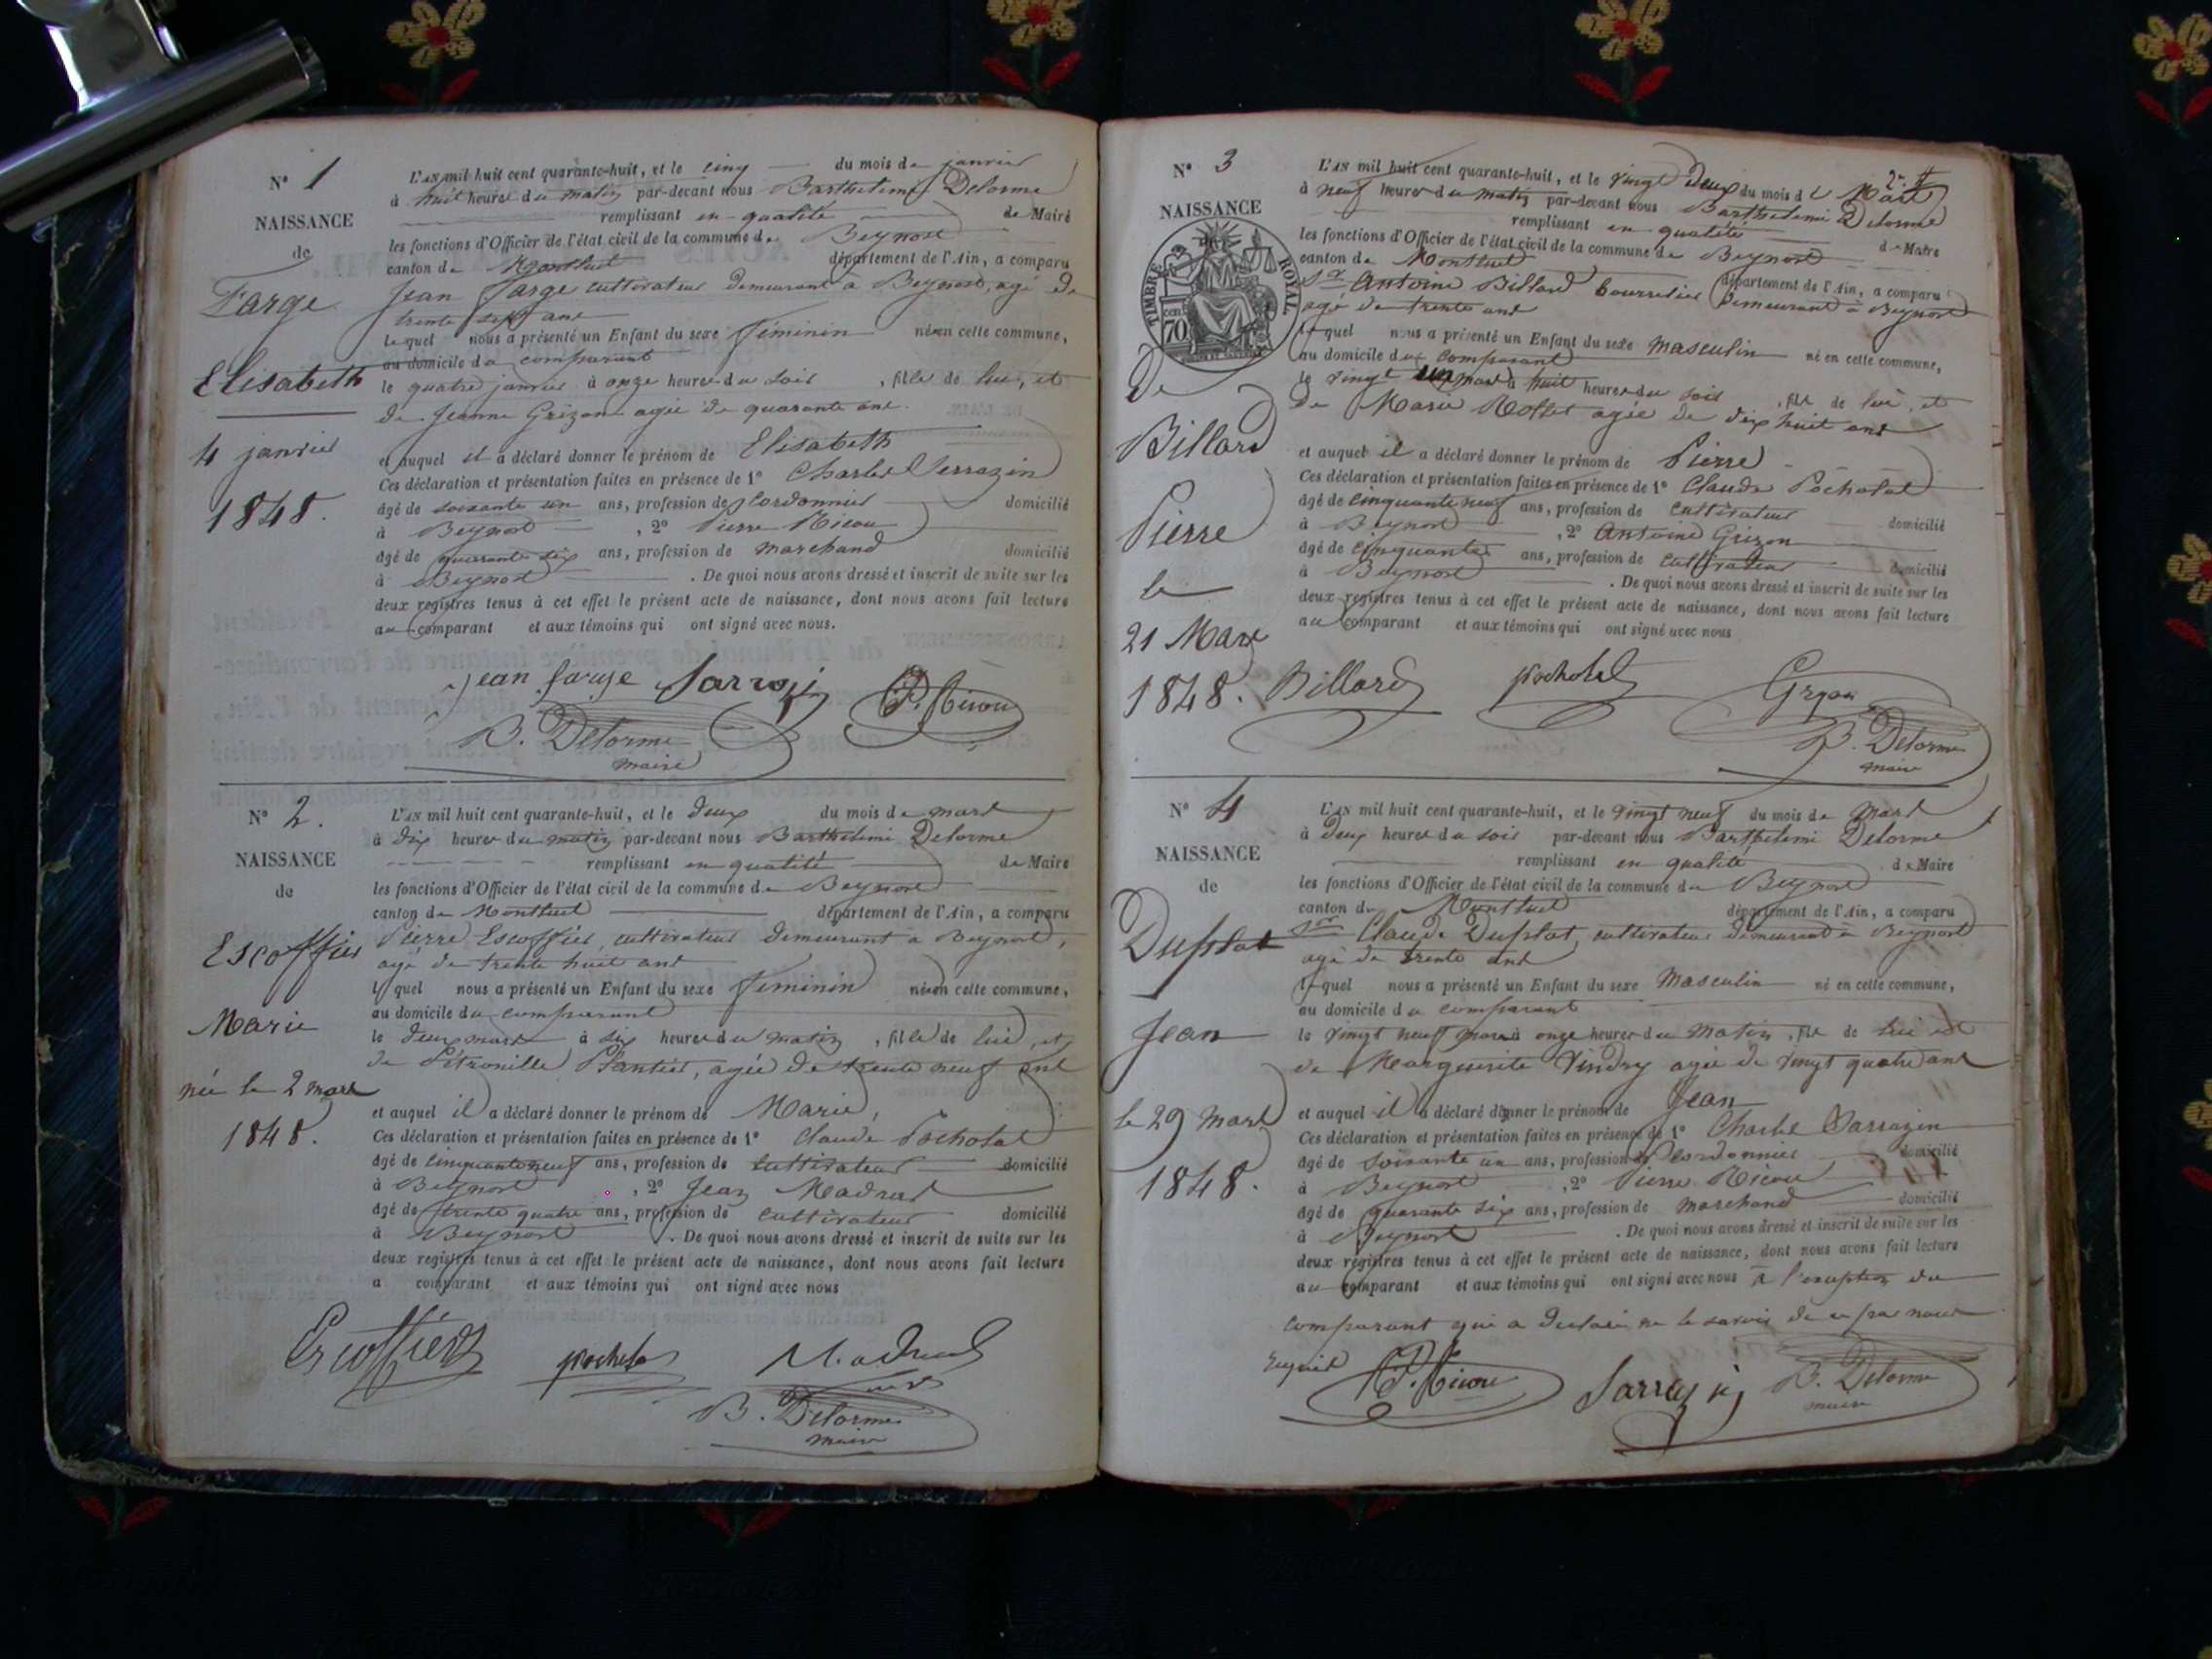 N° 1
NAISSANCE
de
Farge
Elisabeth
4 janvier
1848.
L'AN mil huit cent quarante-huit, et le cinq du mois de janvier
à huit heures du matin par-devant nous Barthelemi Delorme
remplissant en qualité de Maire
les fonctions d'Officier de l'état civil de la commune de Beynost
canton de Montluel département de l'Ain, a comparu
Jean Farge cultivateur demeurant à Beynost, agé de
trente six ans
lequel nous a présenté un Enfant du sexe féminin née en cette commune,
au domicile du comparant
le quatre janvier à onze heures du soir, fille de lui, et
de Jeanne Grizon agée de quarante ans.
et auquel il a déclaré donner le prénom de Elisabeth
Ces déclaration et présentation faites en présence de 1° Charles Serrazin
âgé de soixante un ans, profession de cordonnier domicilié
à Beynost, 2° Pierre Nicou
âgé de quarante six ans, profession de marchand domicilié
à Beynost. De quoi nous avons dressé et inscrit de suite sur les
deux registres tenus à cet effet le présent acte de naissance, dont nous avons fait lecture
au comparant et aux témoins qui ont signé avec nous.
jean farge Sarrazin P. Nicou
B. Delorme
maire
N° 2.
NAISSANCE
de
Escoffier
Marie
née le 2 mars
1848.
L'AN mil huit cent quarante-huit, et le deux du mois de mars
à dix heures du matin par-devant nous Barthelemi Delorme
remplissant en qualité de Maire
les fonctions d'Officier de l'état civil de la commune de Beynost
canton de Montluel département de l'Ain, a comparu
Pierre Escoffier, cultivateur demeurant à Beynost,
agé de trente huit ans
lequel nous a présenté un Enfant du sexe féminin née en cette commune,
au domicile du comparant
le deux mars à six heures du matin, fille de lui, et
de Pétronille Plantier, agée de trente neuf ans
et auquel il a déclaré donner le prénom de Marie,
Ces déclaration et présentation faites en présence de 1° Claude Pocholat
âgé de cinquante neuf ans, profession de cultivateur domicilié
à Beynost, 2° Jean Madrad
âgé de trente quatre ans, profession de cultivateur domicilié
à Beynost. De quoi nous avons dressé et inscrit de suite sur les
deux registres tenus à cet effet le présent acte de naissance, dont nous avons fait lecture
a comparant et aux témoins qui ont signé avec nous
Escoffier
B. Delorme
maire
N° 3
NAISSANCE
TIMBRE ROYAL
70 cen
De
Billard
Pierre
le
21 Mars
1848.
L'AN mil huit cent quarante-huit, et le vingt deux du mois de Mars
à neuf heures du matin par-devant nous Barthelemi Delorme
remplissant en qualité de Maire
les fonctions d'Officier de l'état civil de la commune de Beynost
canton de Montluel département de l'Ain, a comparu
Sr Antoine Billard bourrelier demeurant à Beynost
agé de trente ans
lequel nous a présenté un Enfant du sexe masculin né en cette commune,
au domicile du comparant
le vingt un mars à huit heures du soir, fils de lui, et
de Marie agée de dix huit ans
et auquel il a déclaré donner le prénom de Pierre
Ces déclaration et présentation faites en présence de 1° Claude Pocholat
âgé de cinquante neuf ans, profession de cultivateur domicilié
à Beynost, 2° Antoine Grizon
âgé de cinquante ans, profession de cultivateur domicilié
à Beynost. De quoi nous avons dressé et inscrit de suite sur les
deux registres tenus à cet effet le présent acte de naissance, dont nous avons fait lecture
au comparant et aux témoins qui ont signé avec nous
Billard pocholat
B. Delorme
maire
N° 4
NAISSANCE
de
Duplat
Jean
le 29 mars
1848.
L'AN mil huit cent quarante-huit, et le vingt neuf du mois de Mars
à deux heures du soir par-devant nous Barthelemi Delorme
remplissant en qualité de Maire
les fonctions d'Officier de l'état civil de la commune de Beynost
canton de Montluel département de l'Ain, a comparu
Sr Claude Duplat, cultivateur demeurant à Beynost
agé de trente ans
lequel nous a présenté un Enfant du sexe Masculin né en cette commune,
au domicile du comparant
le vingt neuf mars à onze heures du matin, fils de lui et
de Marguerite Vindry agée de vingt quatre ans
et auquel il a déclaré donner le prénom de Jean
Ces déclaration et présentation faites en présence de 1° Charles Sarrazin
âgé de soixante un ans, profession de cordonnier domicilié
à Beynost, 2° Pierre Nicou
âgé de quarante six ans, profession de marchand domicilié
à Beynost. De quoi nous avons dressé et inscrit de suite sur les
deux registres tenus à cet effet le présent acte de naissance, dont nous avons fait lecture
au comparant et aux témoins qui ont signé avec nous à l'exception du
comparant qui a déclaré ne le savoir de ce par nous
requis P. Nicou Sarrazin B. Delorme
maire